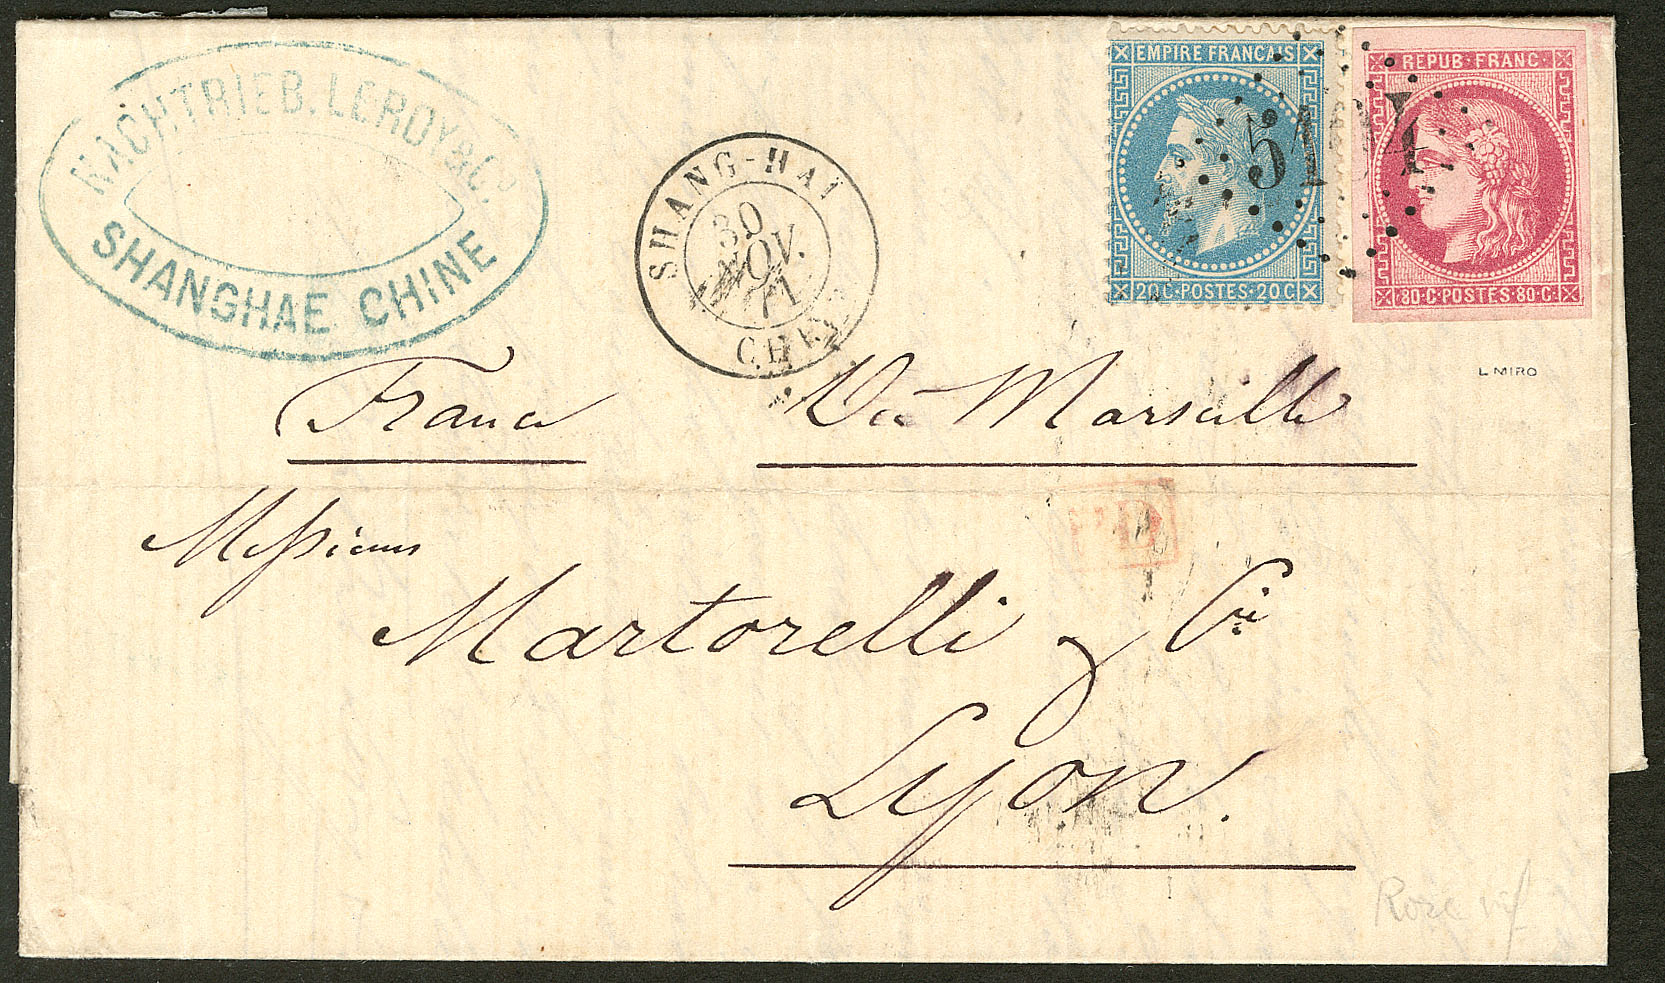 NACHTRIEB. LEROY & Co.
SHANGHAE CHINE
SHANG-HAI
30
NOV.
71
CHINE
EMPIRE FRANÇAIS
20 C·POSTES·20 C
REPUB·FRANC·
80·C·POSTES·80·C·
5104
L MIRO
France Via Marseille
PD
Messieurs
Martorelli & Cie
Lyon.
Rose vif